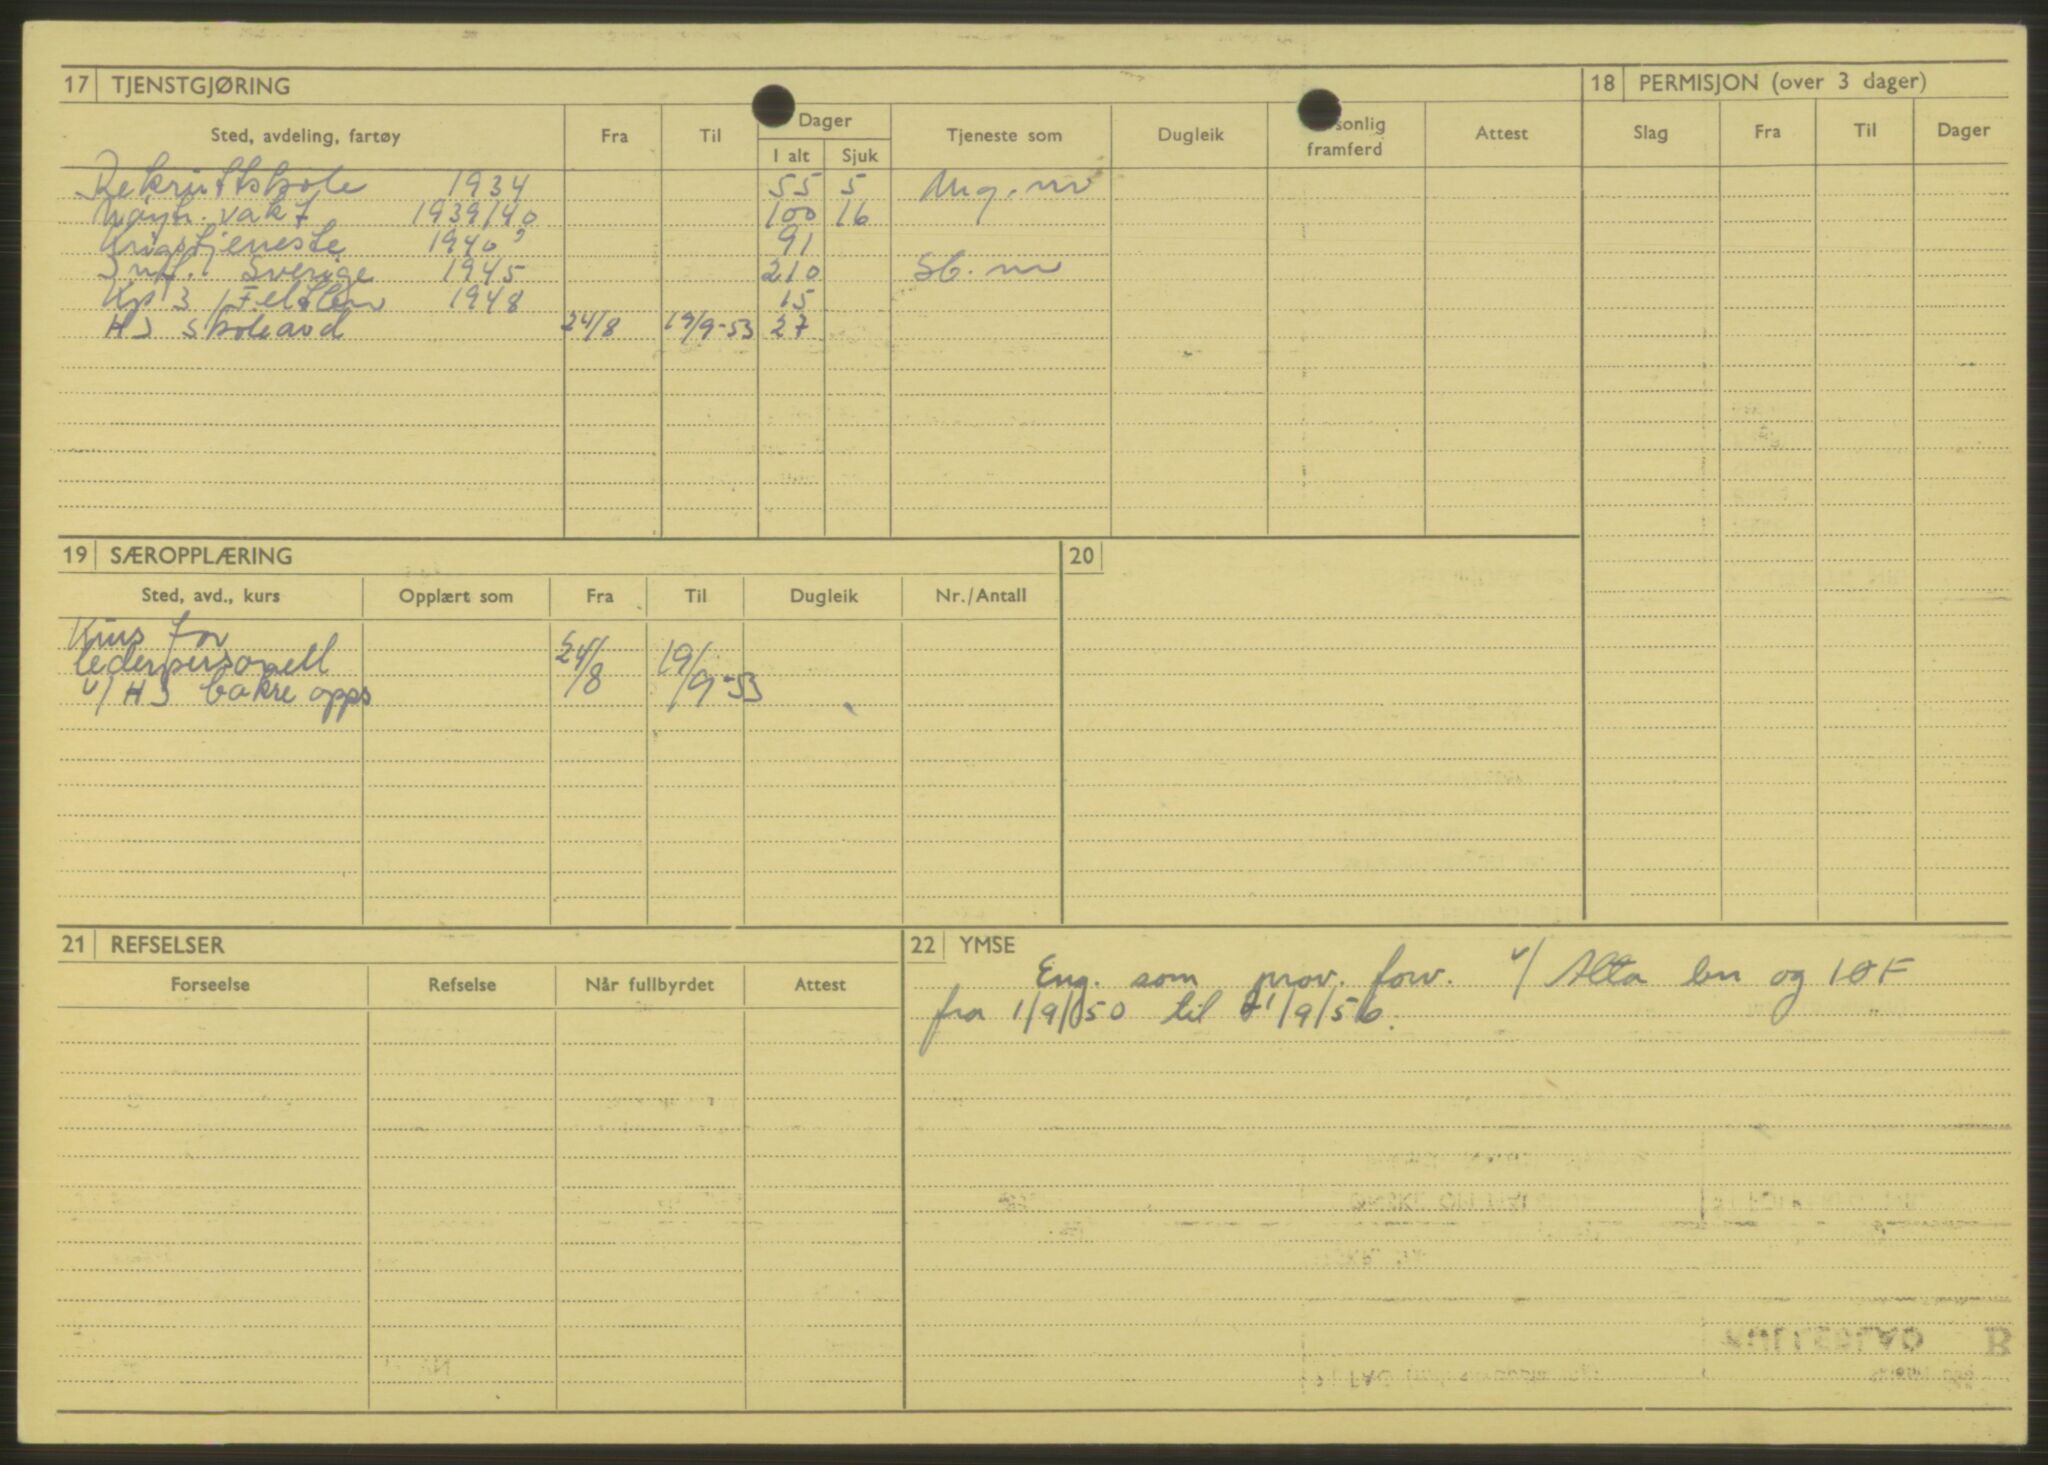 17 TJENSTGJØRING
Sted, avdeling, fartøy Fra Til Dager Tjeneste som Dugleik sonlig framferd Attest
I alt Sjuk
Rekruttskole 1934 55 5 Mg. m
Nøytr. vakt 1939/40 100 16
Krigstjeneste 1940 91
Inf. i Sverige 1945 210 Sb. m
Kp 3 / Feltbn 1948 15
HJ Skoleavd 24/8 19/9-53 27
18 PERMISJON (over 3 dager)
Slag Fra Til Dager
19 SÆROPPLÆRING
Sted, avd., kurs Opplært som Fra Til Dugleik Nr./Antall
Kurs for
lederpersonell 24/8 19/9-53
v/ HJ bakre opps
20
21 REFSELSER
Forseelse Refselse Når fullbyrdet Attest
22 YMSE
Eng. som prov. forv. v/ Alta bn og IØF
fra 1/9/50 til 1/9/56.